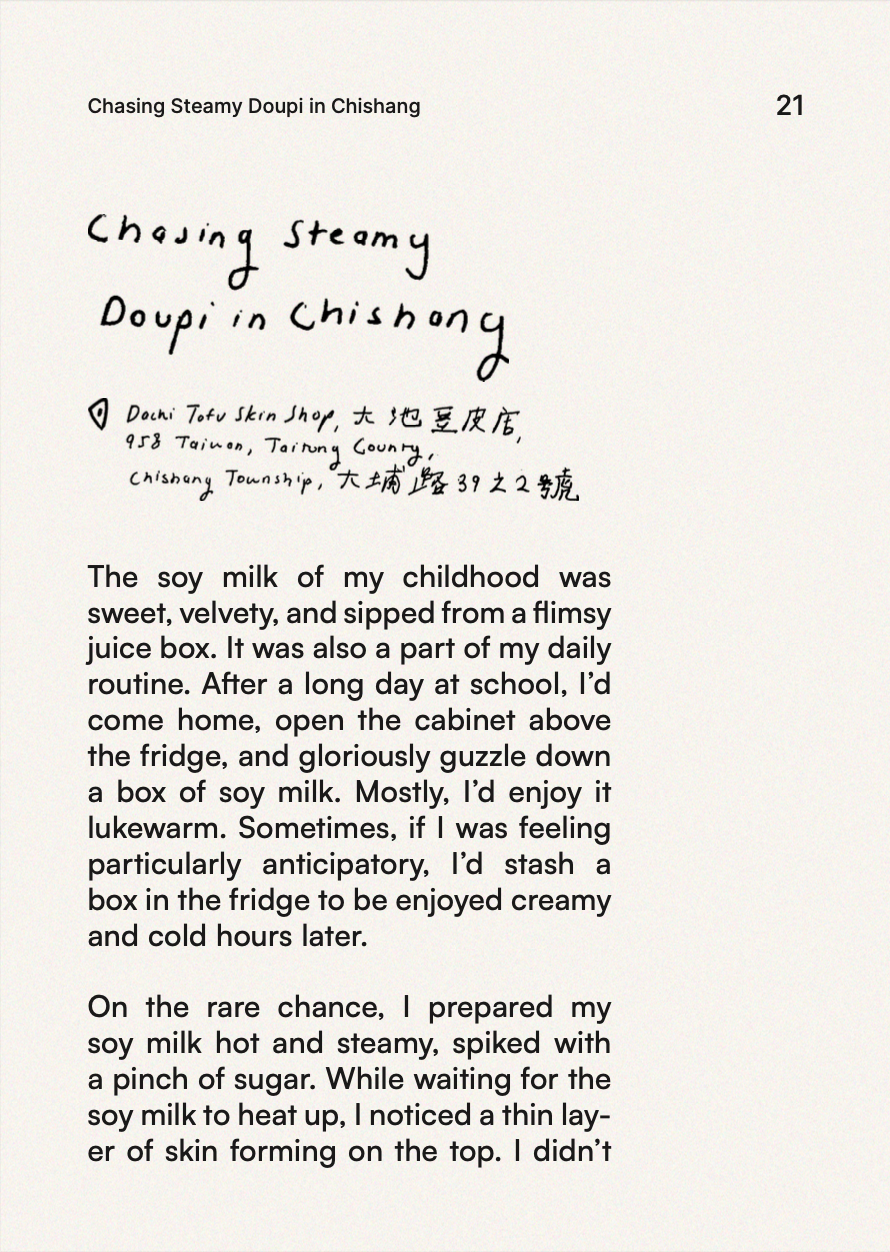 Chasing Steamy Doupi in Chishang
21
Chasing Steamy
Doupi in Chishang
Dachi Tofu Skin Shop, 大池豆皮店,
958 Taiwan, Taitung County,
Chishang Township, 大埔路39之2號
The soy milk of my childhood was
sweet, velvety, and sipped from a flimsy
juice box. It was also a part of my daily
routine. After a long day at school, I’d
come home, open the cabinet above
the fridge, and gloriously guzzle down
a box of soy milk. Mostly, I’d enjoy it
lukewarm. Sometimes, if I was feeling
particularly anticipatory, I’d stash a
box in the fridge to be enjoyed creamy
and cold hours later.
On the rare chance, I prepared my
soy milk hot and steamy, spiked with
a pinch of sugar. While waiting for the
soy milk to heat up, I noticed a thin lay-
er of skin forming on the top. I didn’t